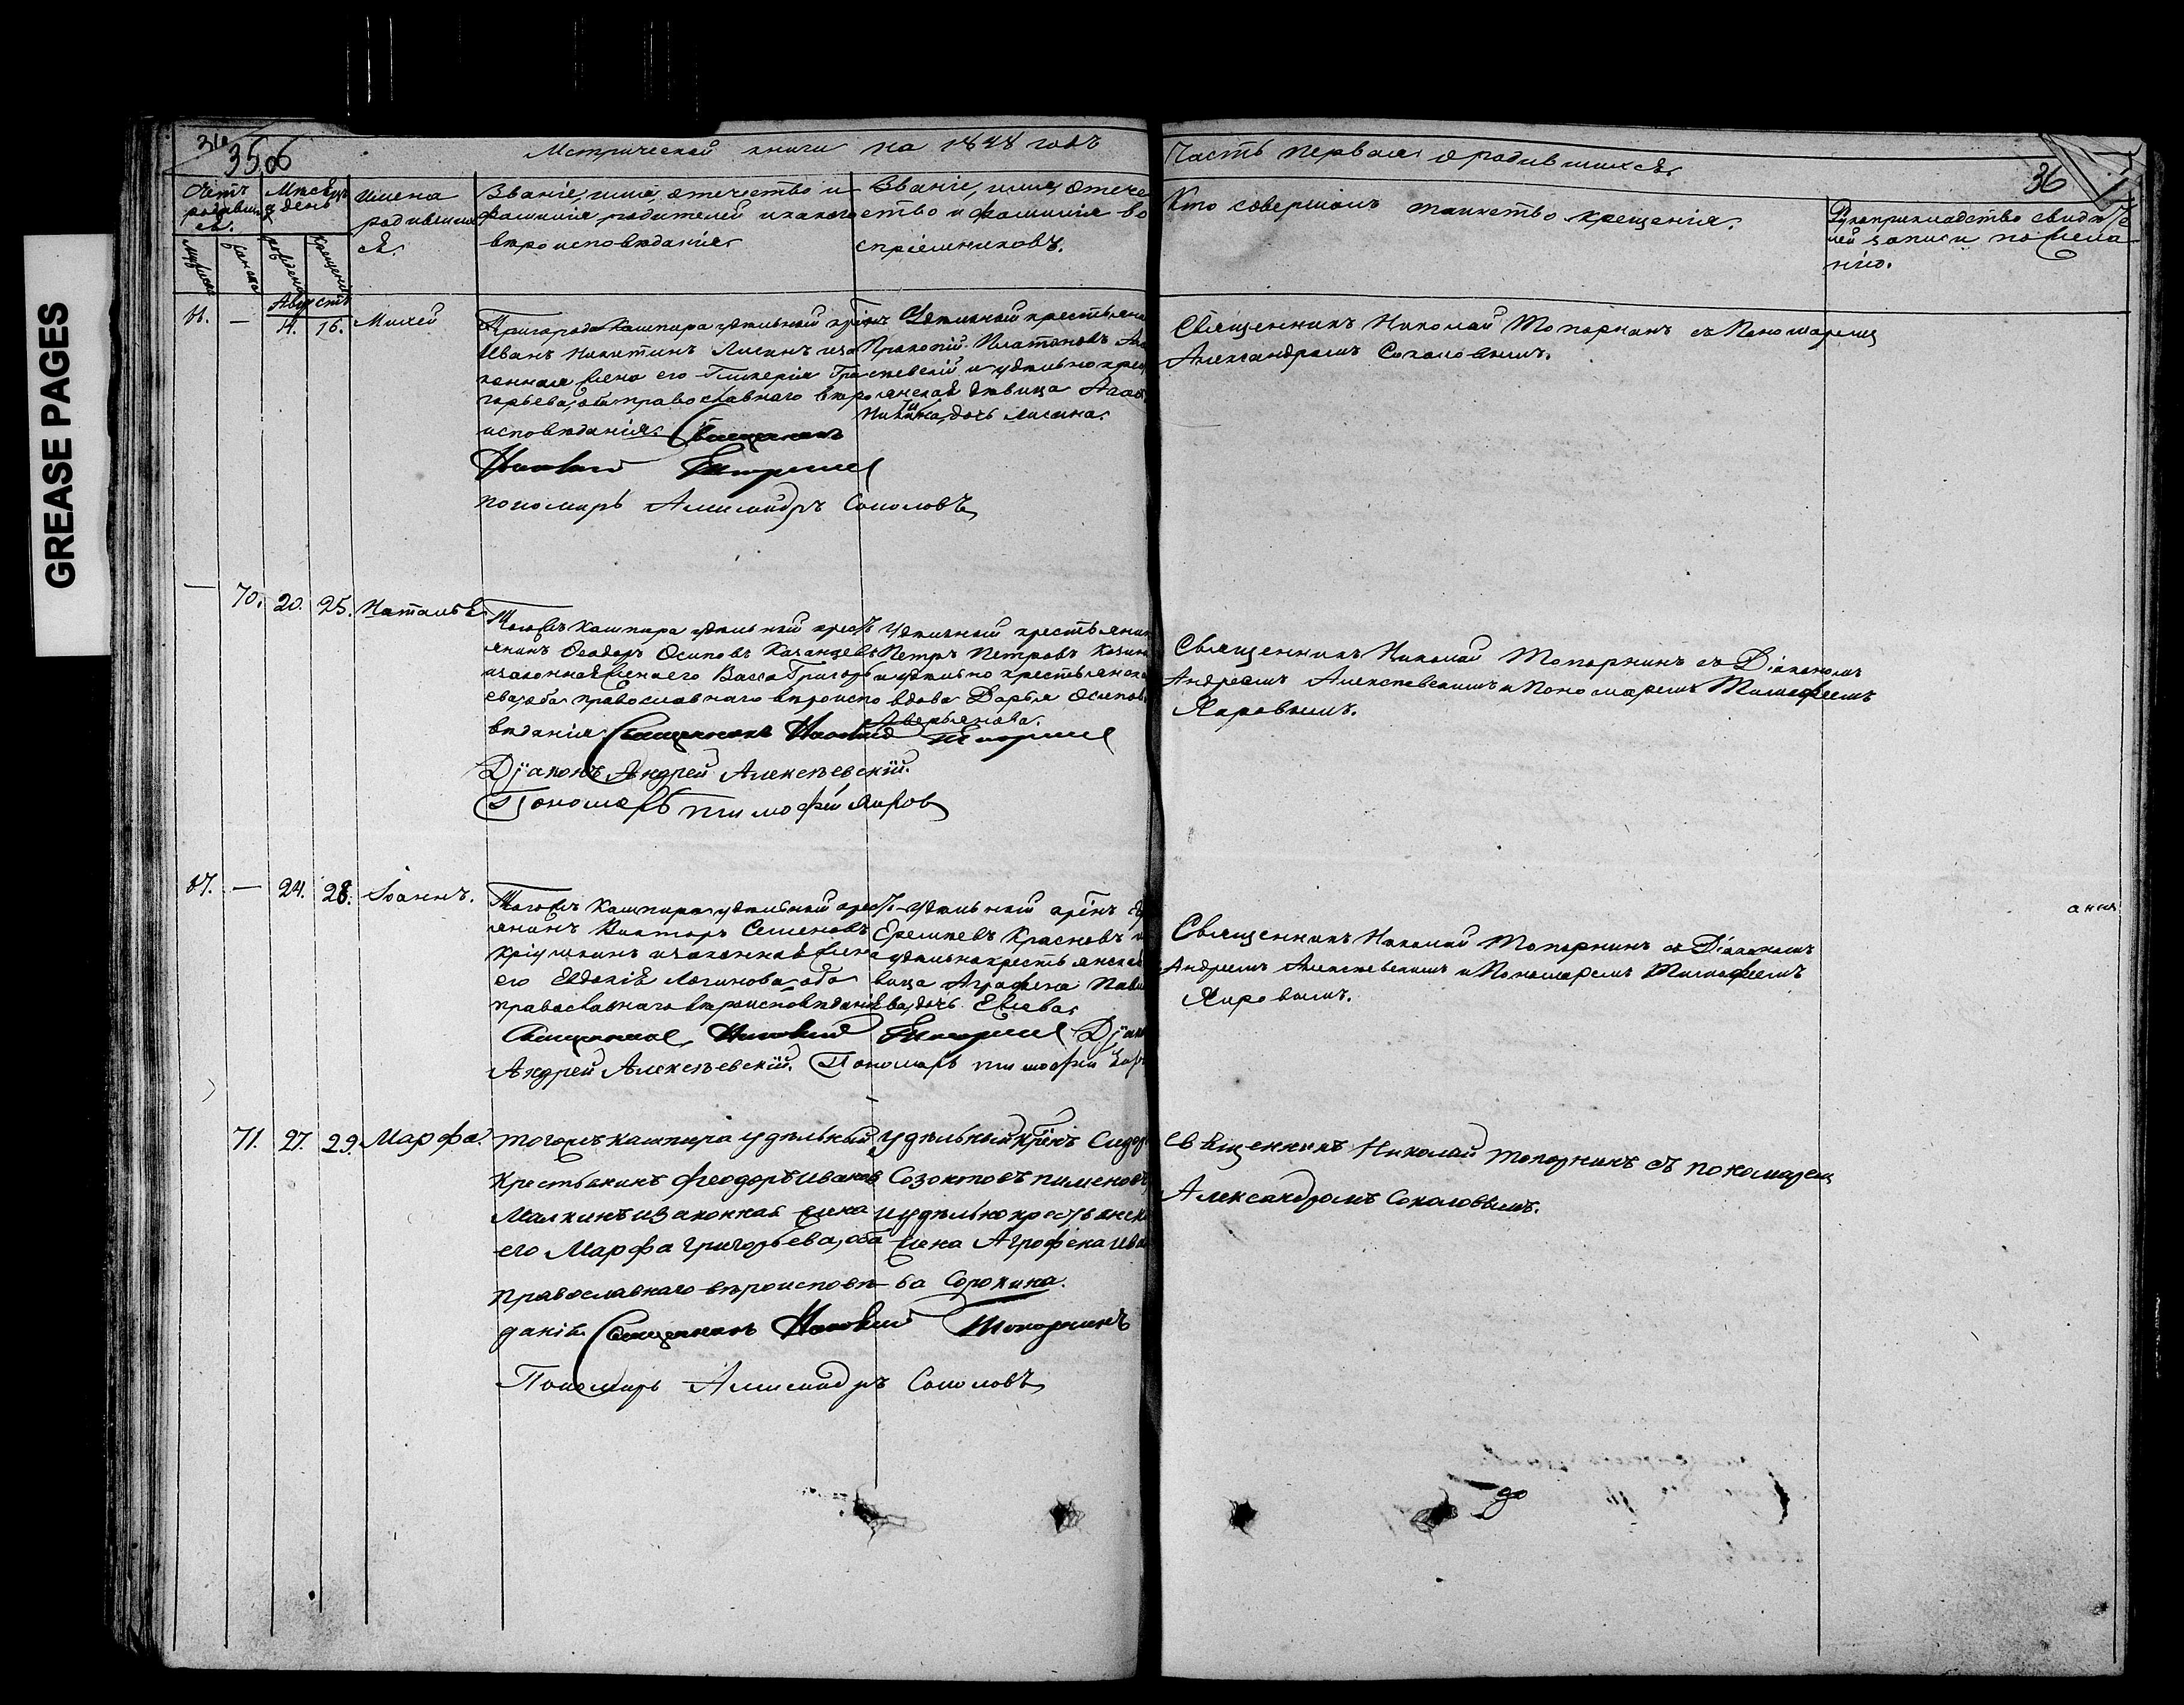 GREASE PAGES
Метрической книги на 1848 годъ
Часть первая о родившихся.
36
Счетъ родившихся.
Мѣсяцъ и день
Имена родившихся.
Званіе, имя, отечество и фамилія родителей и какого вѣроисповѣданія
Званіе, имя, отечество и фамилія воспріемниковъ.
Кто совершалъ таинство крещенія.
Рукоприкладство свидѣтелей записи по желанію.
Августъ
—
16.
Михей
Пригорода Кашпира удѣльный крінъ
Иванъ Никитинъ Лисинъ и за
конная жена его Гликерія Гри
горьева, оба православнаго вѣро
исповѣданія. Священникъ
Николай Топорнинъ
пономарь Александръ Соколовъ
Удѣльный крестьяни
Прокопій Платоновъ
и удѣльно крес
янская дѣвица
Никитина дочь Лисина.
Священникъ Николай Топорнинъ съ Пономаремъ
Александромъ Соколовымъ.
—
70.
20.
25.
Наталья
Тогожъ Кашпира удѣльный крест
янинъ Феодоръ Осиповъ Казанцевъ
и законная жена его Васса Григорь
ева, оба православнаго вѣроиспо
вѣданія. Священникъ Николай Топорнинъ
Діаконъ Андрей Алексѣевскій.
Пономарь Тимофей Яиров
Удѣльный крестьянин
Петръ Петровъ
и удѣльно крестьянска
вдова Дарья Осипов
Аверьянова.
Священникъ Николай Топорнинъ съ Діакономъ
Андреемъ Алексѣевскимъ и Пономаремъ Тимофеемъ
Яировымъ.
67.
—
24.
28.
Іоаннъ.
Тогожъ Кашпира удѣльный крест
янинъ Викторъ Семеновъ
Кріушкинъ и законная жена
его Евдокія Логинова, оба
православнаго вѣроисповѣданія
Священникъ Николай Топорнинъ Діак
Андрей Алексѣевскій. Пономарь Тимофей
Удѣльный крінъ
Еремѣевъ Красновъ и
удѣльно крестьянская
вица Аграфена Павл
ва, дочь Ежева.
Священникъ Николай Топорнинъ съ Діакономъ
Андреемъ Алексѣевскимъ и Пономаремъ Тимофеемъ
Яировымъ.
71.
27.
29.
Марфа.
тогожъ кашпира удѣльный
Крестьянинъ Феодоръ Иванов
Малкинъ и законная жена
его Марфа Григорьева, оба
православнаго вѣроисповѣ
данія. Священникъ Николай Топорнинъ
Пономарь Александръ Соколовъ
удѣльный крінъ Сидор
Созонтовъ пименовъ
и удѣльно крестьянск
жена Агрофена Ива
ва Сорокина.
священникъ Николай топорнинъ съ пономаремъ
Александромъ Соколовымъ.